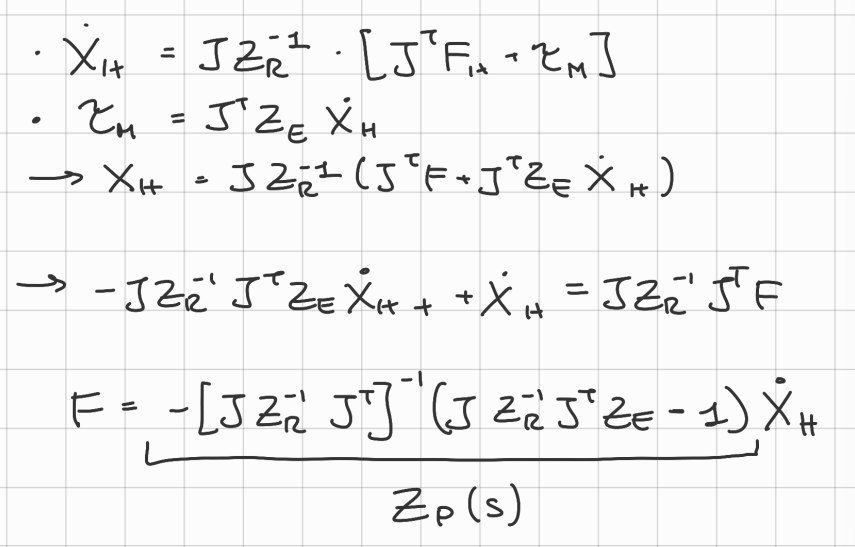 · Ẋ_H = J Z_R^-1 · [J^T F_H + τ_M]
· τ_M = J^T Z_E Ẋ_H
→ X_H = J Z_R^-1 (J^T F + J^T Z_E Ẋ_H)
→ -J Z_R^-1 J^T Z_E Ẋ_H + + Ẋ_H = J Z_R^-1 J^T F
F = -[J Z_R^-1 J^T]^-1 (J Z_R^-1 J^T Z_E - 1) Ẋ_H
Z_P(s)